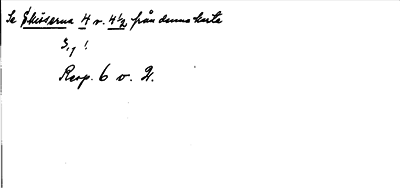 Se skisserna 4 v. 4½ från denna karta
S.g!
Resp. 6 v. 2.